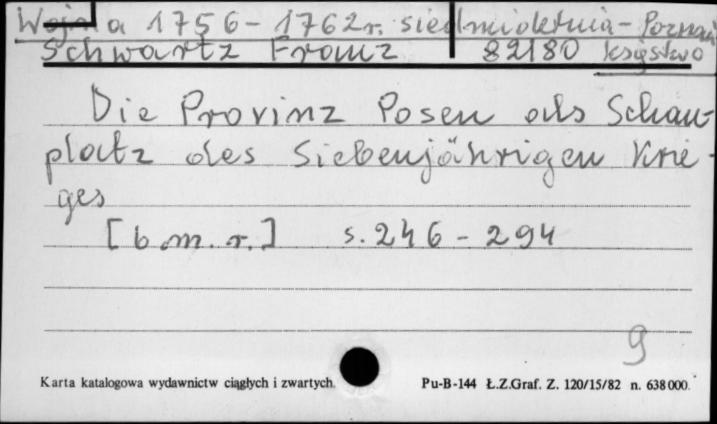 Wojna 1756-1762r. siedmioletnia - Poznań
Schwartz Franz 82180 Księstwo
Die Provinz Posen als Schau-
platz des Siebenjährigen Krie-
ges
[b.m.r.] s. 246 - 294
9
Karta katalogowa wydawnictw ciągłych i zwartych. Pu-B-144 Ł.Z.Graf. Z. 120/15/82 n. 638000.